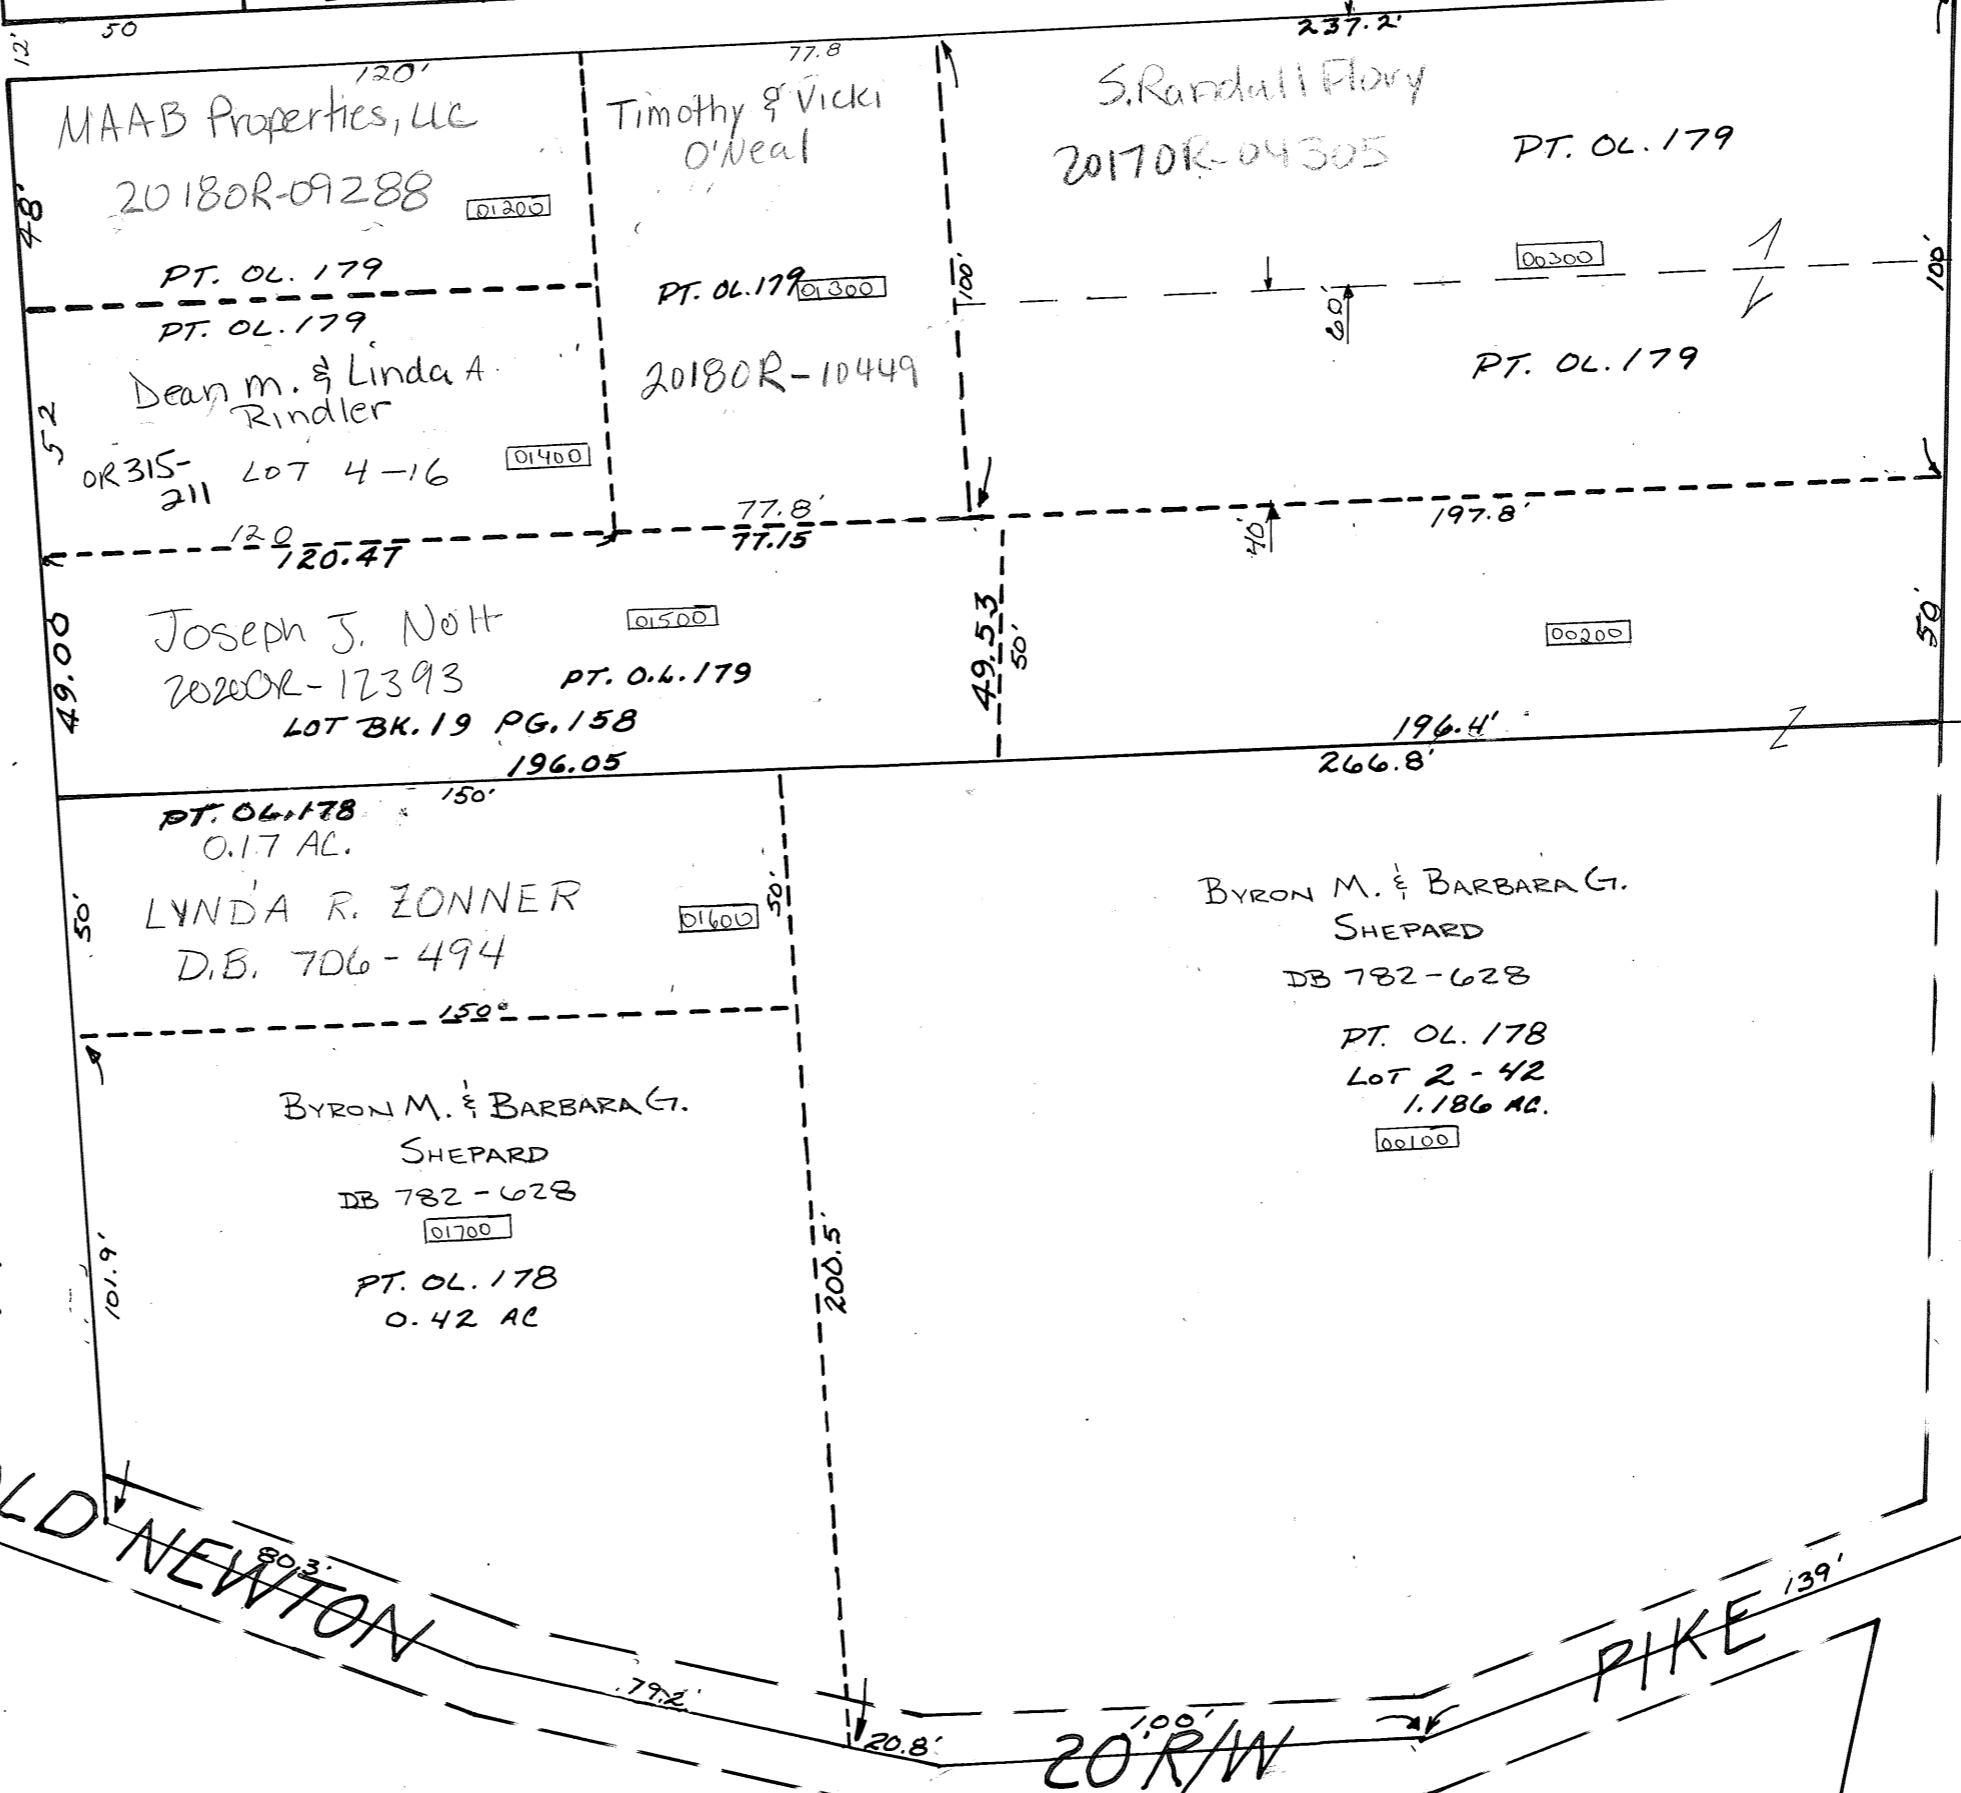 50
12'
237.2'
120'
77.8
MAAB Properties, LLC
20180R-09288
01200
48'
PT. OL. 179
Timothy & Vicki
O'Neal
PT. OL. 179 01300
20180R-10449
S. Randall Flory
20170R-04305
PT. OL. 179
00300
100'
100'
60'
PT. OL. 179
PT. OL. 179
Dean M. & Linda A.
Rindler
OR 315-
211
LOT 4-16
01400
52
120
120.47
77.8'
77.15
197.8'
40'
Joseph J. Nott
2020OR-12393
01500
PT. O.L. 179
LOT BK. 19 PG. 158
49.00
49.53
50'
00200
50'
196.05
196.4'
266.8'
150'
PT. OL. 178
0.17 AC.
LYNDA R. ZONNER
D.B. 706-494
01600
50'
50'
150'
BYRON M. & BARBARA G.
SHEPARD
DB 782-628
PT. OL. 178
LOT 2-42
1.186 AC.
00100
BYRON M. & BARBARA G.
SHEPARD
DB 782-628
01700
PT. OL. 178
0.42 AC
101.9'
200.5'
LD NEWTON
80.3'
79.2'
20.8'
100'
20' R/W
PIKE
139'